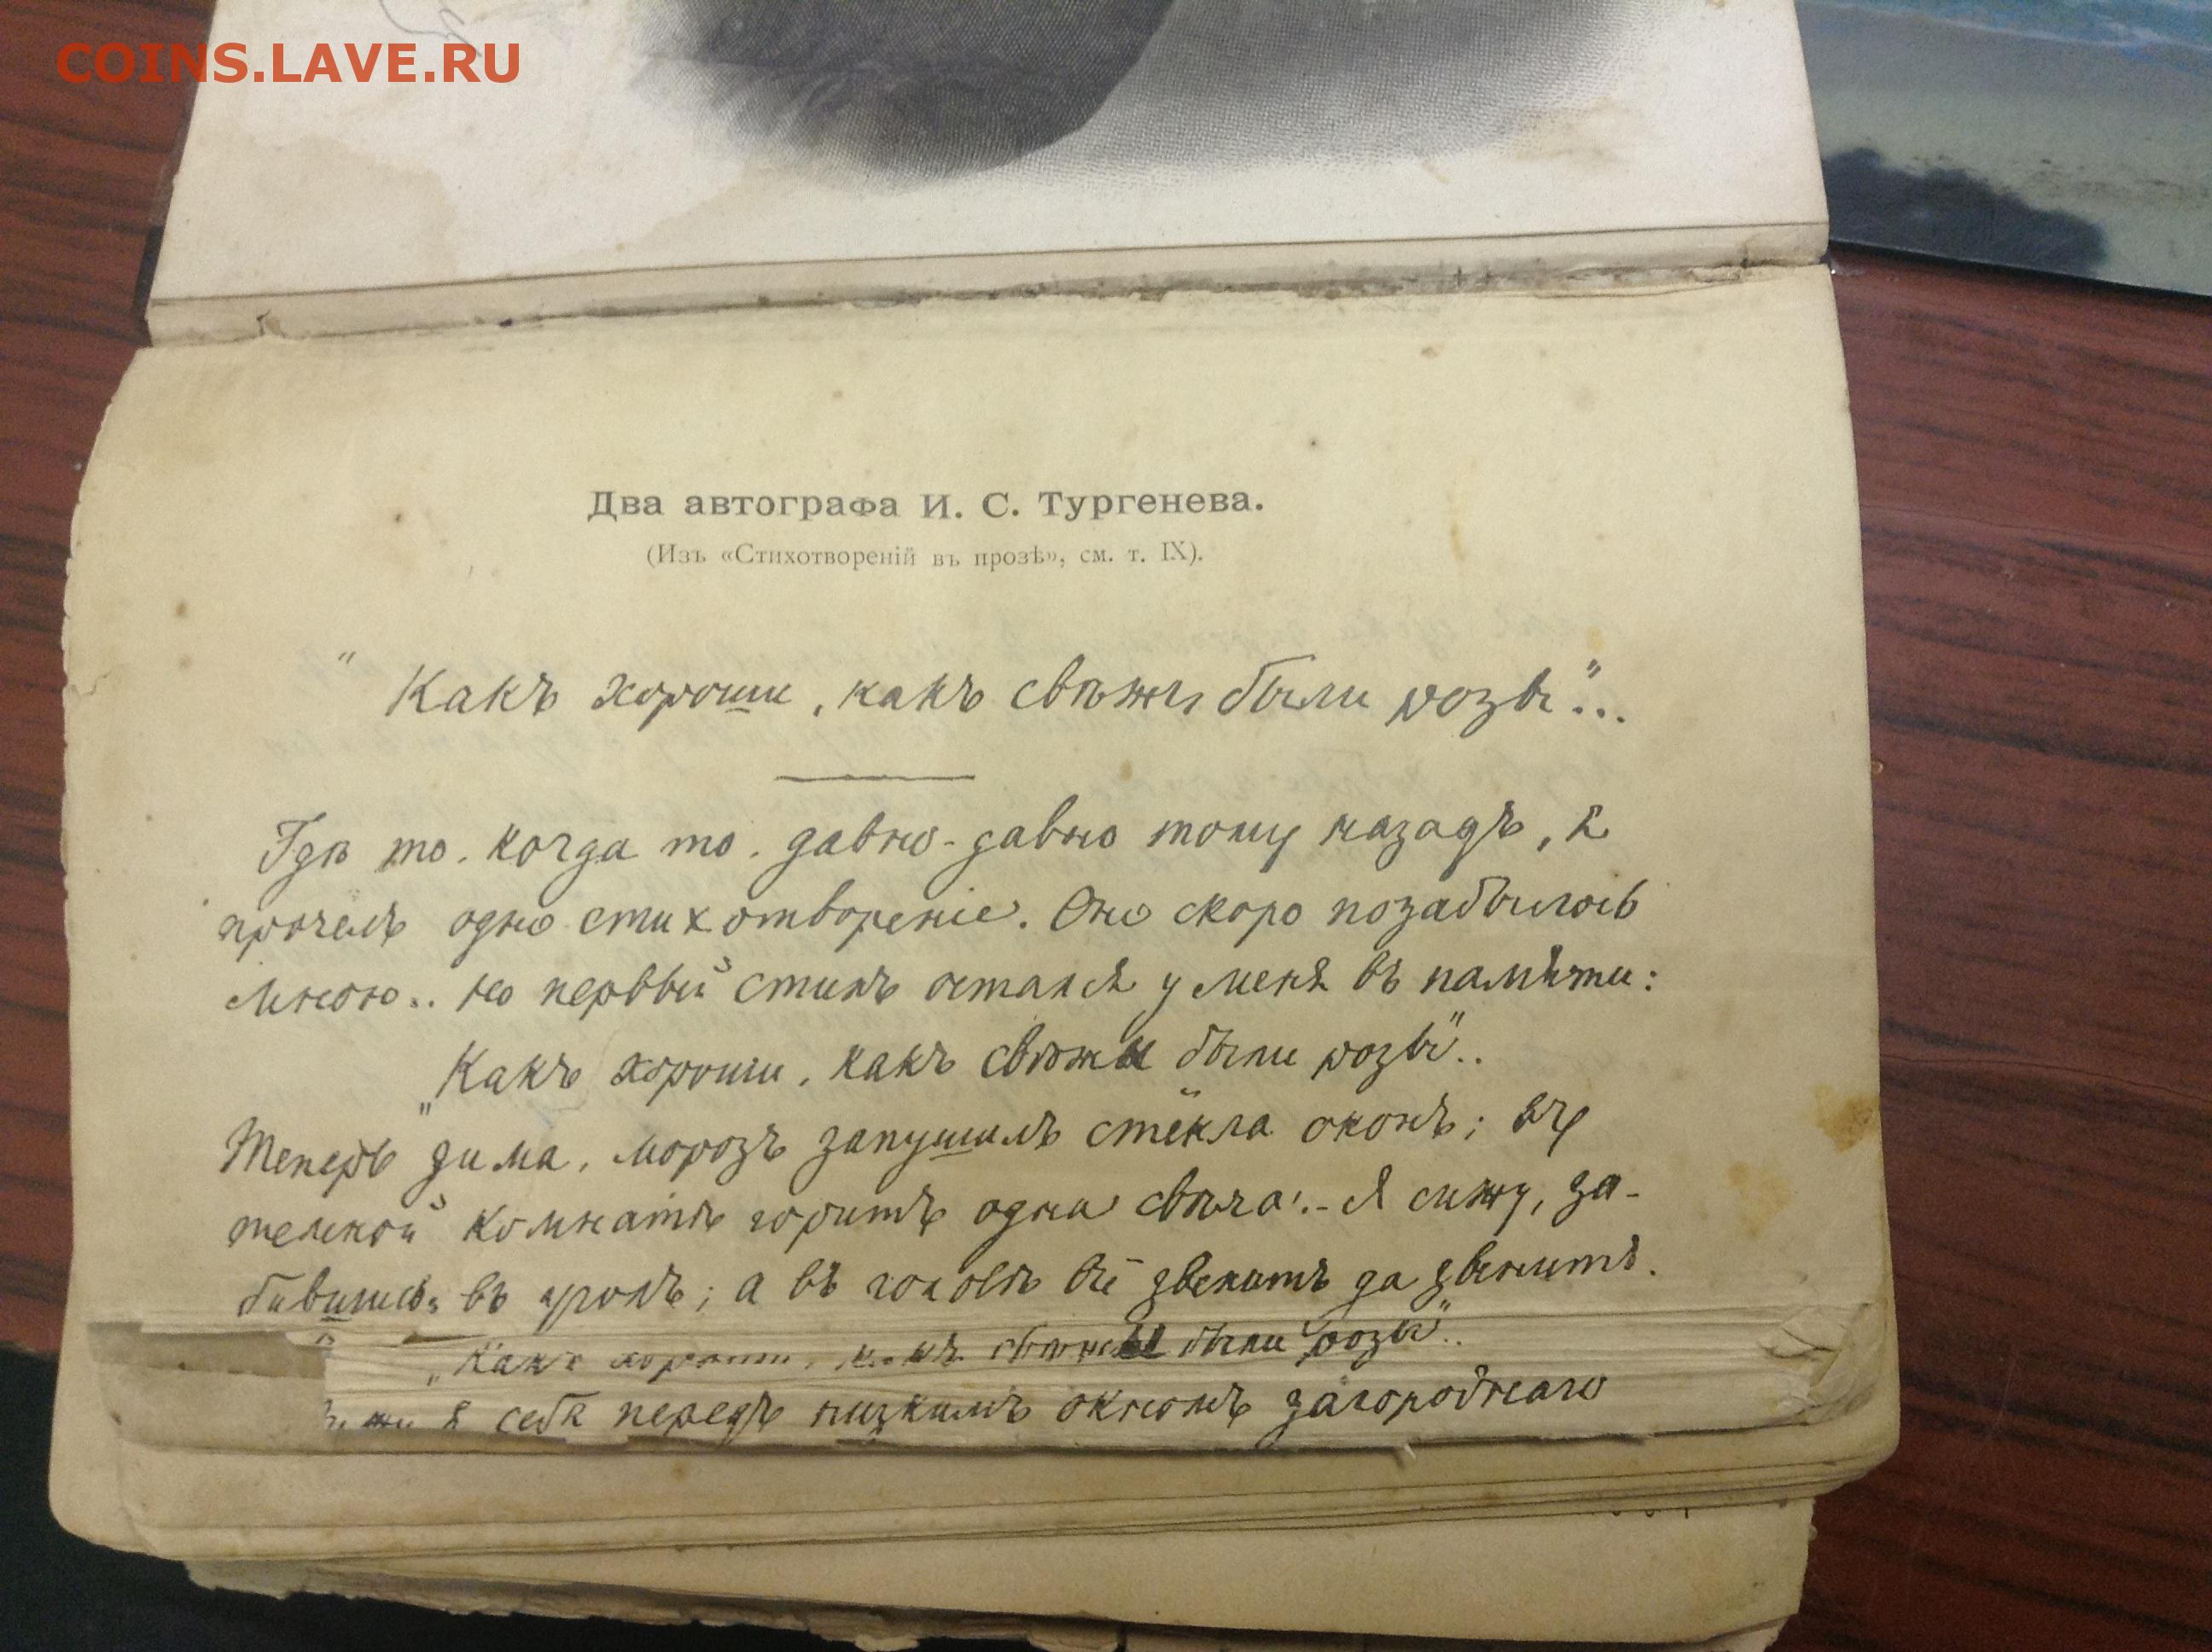 COINS.LAVE.RU
Два автографа И. С. Тургенева.
(Изъ «Стихотвореній въ прозѣ», см. т. IX).
"Какъ хороши, какъ свѣжи были розы"...
Гдѣ то. когда то. давно-давно тому назадъ, я
прочелъ одно стихотвореніе. Оно скоро позабылось
мною.. но первый стихъ остался у меня въ памяти:
„Какъ хороши, какъ свѣжи были розы"..
Теперь зима, морозъ запушилъ стёкла оконъ; въ
темной комнатѣ горитъ одна свѣча.- Я сижу, за-
бившись въ уголъ; а въ головѣ всё звенитъ да звенитъ.
„Какъ хороши, какъ свѣжи были розы"..
я себя передъ низкимъ окномъ загороднаго